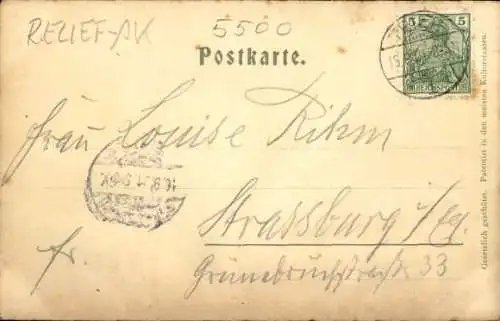 RELIEF-AK
5500
Postkarte.
5 5
REICHSPOST
Frau Louise Rihm
Strassburg i/Eg.
fr.
Grünebruchstraße 33
Gesetzlich geschützt. Patentirt in den meisten Kulturstaaten.